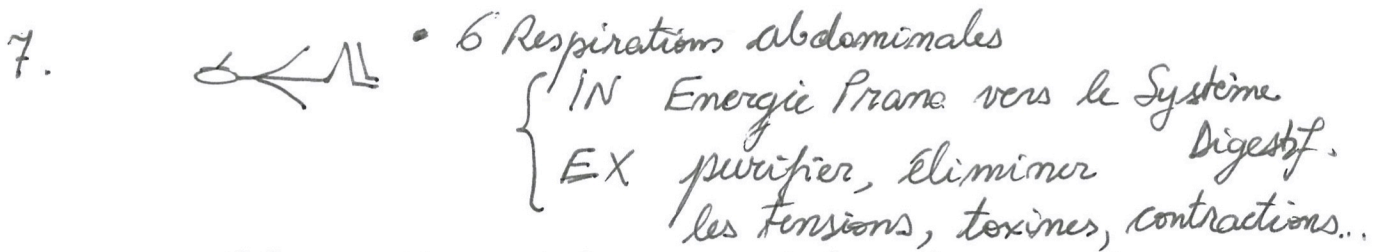 7. • 6 Respirations abdominales
IN Energie Prana vers le Système
Digestif.
EX purifier, éliminer
les tensions, toxines, contractions...